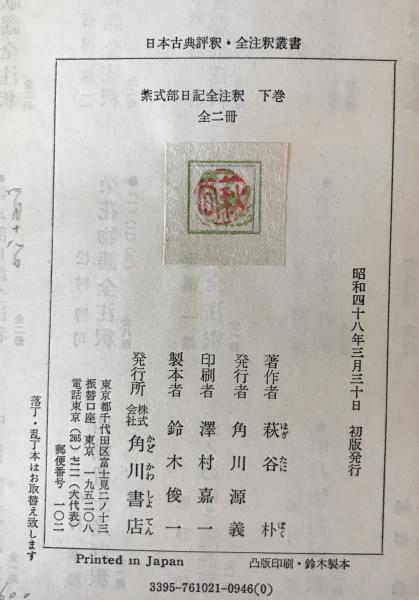 日本古典評釈・全注釈叢書
紫式部日記全注釈　下巻
全二冊
萩谷
昭和四十八年三月三十日　初版発行
著作者　萩谷　朴
はぎ　たに　ぼく
発行者　角川源義
印刷者　澤村嘉一
製本者　鈴木俊一
発行所　株式会社　角川書店
かど　かわ　しょ　てん
東京都千代田区富士見二ノ十三
振替口座　東京　一九五二〇八
電話東京(265)七一一一(大代表)
郵便番号　一〇二
落丁・乱丁本はお取替え致します
Printed in Japan
凸版印刷・鈴木製本
3395-761021-0946(0)